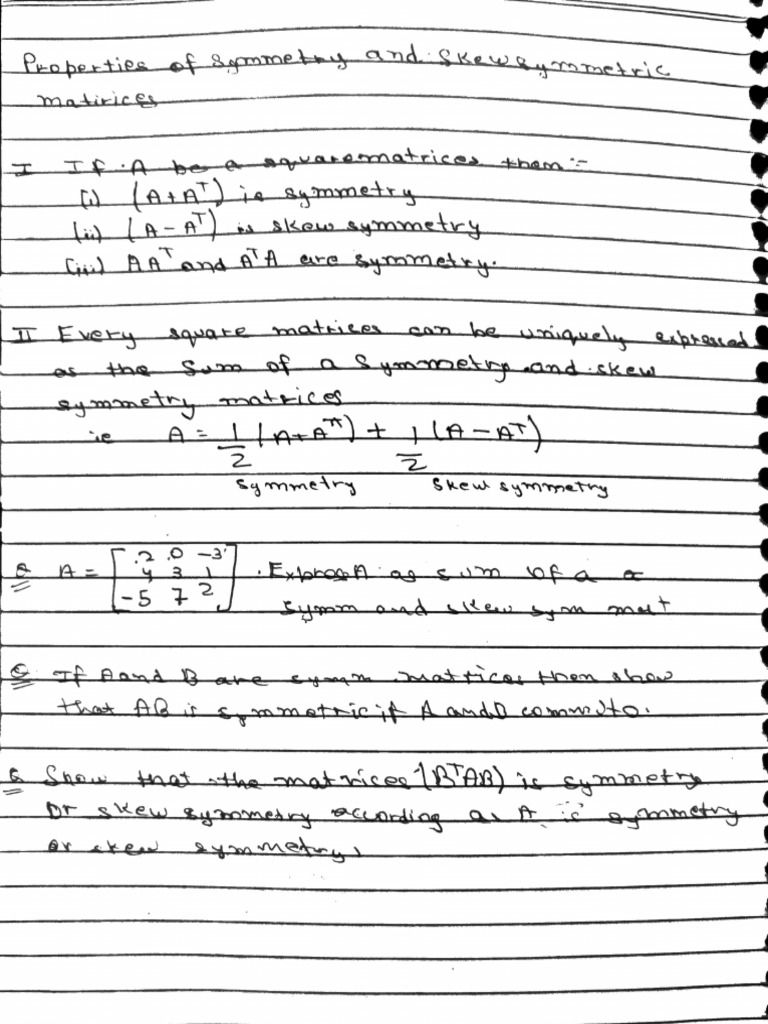 Properties of Symmetry and Skew symmetric
matirices
I If A be a square matrices then :-
(i) (A+A^T) is symmetry
(ii) (A-A^T) is skew symmetry
(iii) AA^T and A^TA are symmetry.
II Every square matrices can be uniquely expressed
as the sum of a symmetry and skew
symmetry matrices
ie A = 1/2 (A+A^T) + 1/2 (A-A^T)
symmetry skew symmetry
Q A = [2 0 -3
4 3 1
-5 7 2] . Express A as sum of a
symm and skew sym mat
Q If A and B are symm matrices then show
that AB is symmetric if A and B commute.
Q Show that the matrices (B^TAB) is symmetry
or skew symmetry according as A is symmetry
or skew symmetry.